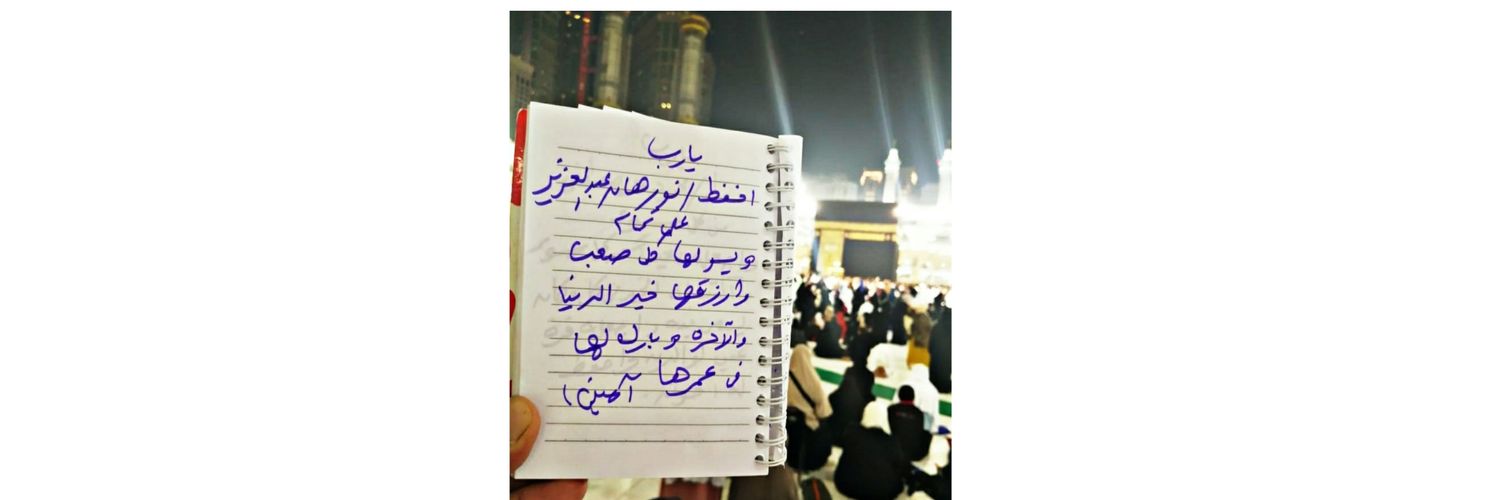 يارب
احفظ / نورهان عبدالعزيز
على تمام
ويسر لها كل صعب
وارزقها خير الدنيا
والآخرة وبارك لها
فى عمرها آمين